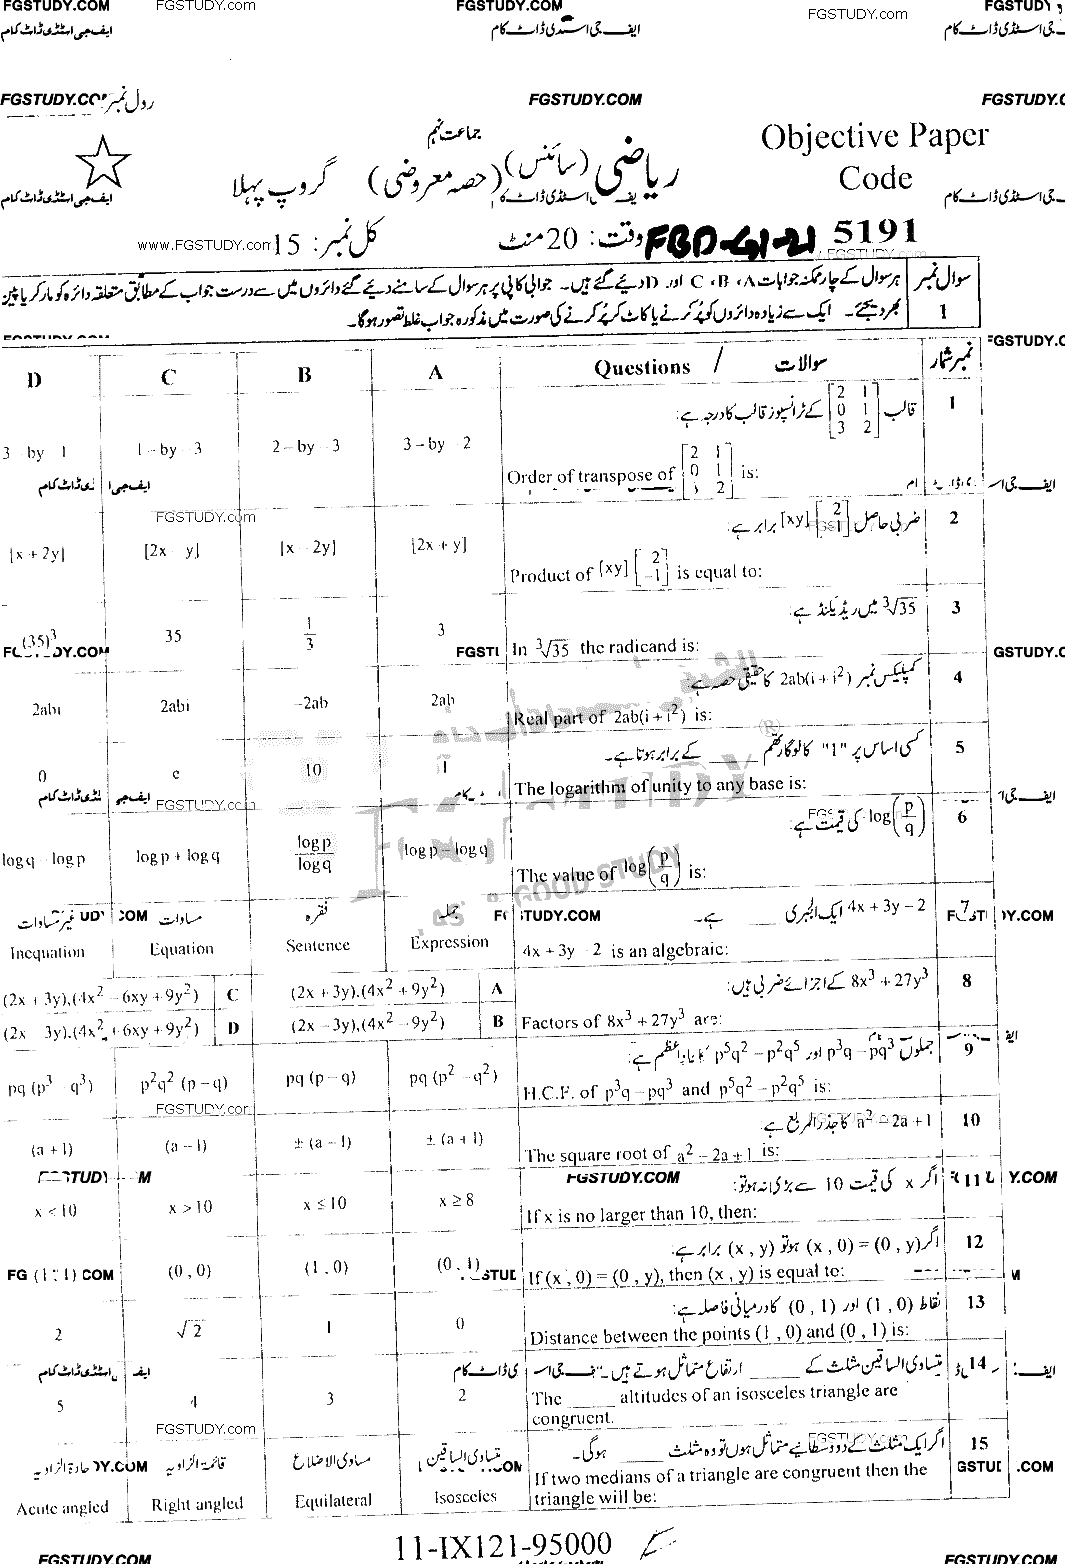 FGSTUDY.COM FGSTUDY.COM FGSTUDY.com FGSTUDY
ایف جی اسٹڈی ڈاٹ کام ایف جی اسٹڈی ڈاٹ کام جی اسٹڈی ڈاٹ کام
FGSTUDY.COM رول نمبر FGSTUDY.COM FGSTUDY.C
جماعت نہم
Objective Paper
Code
5191
ریاضی (سائنس) (حصہ معروضی) گروپ پہلا
ایف جی اسٹڈی ڈاٹ کام جی اسٹڈی ڈاٹ کام
www.FGSTUDY.com
وقت: 20 منٹ کل نمبر: 15
FBD-G1-21
سوال نمبر 1
ہر سوال کے چار ممکنہ جوابات A ، B ، C اور D دیئے گئے ہیں۔ جوابی کاپی پر ہر سوال کے سامنے دیئے گئے دائروں میں سے درست جواب کے مطابق متعلقہ دائرہ کو مارکر یا پین
بھر دیجئے۔ ایک سے زیادہ دائروں کو پُر کرنے یا کاٹ کر پُر کرنے کی صورت میں مذکورہ جواب غلط تصور ہوگا۔
D C B A Questions / سوالات نمبر شمار
1 قالب [2 1; 0 1; 3 2] کے ٹرانسپوز قالب کا درجہ ہے:
Order of transpose of [2 1; 0 1; 3 2] is:
3 – by – 1 1 – by – 3 2 – by – 3 3 – by – 2
2 ضربی حاصل [xy] [2; -1] برابر ہے:
Product of [xy] [2; -1] is equal to:
[x + 2y] [2x – y] [x – 2y] [2x + y]
3 ∛35 میں ریڈیکنڈ ہے:
In ∛35 the radicand is:
(35)³ 35 1/3 3
4 کمپلیکس نمبر 2ab(i + i²) کا حقیقی حصہ ہے:
Real part of 2ab(i + i²) is:
2abi 2abi –2ab 2ab
5 کسی اساس پر "1" کا لوگارتھم _____ کے برابر ہوتا ہے۔
The logarithm of unity to any base is:
0 e 10 1
6 log(p/q) کی قیمت ہے:
The value of log(p/q) is:
log q – log p log p + log q log p / log q log p – log q
7 4x + 3y – 2 ایک الجبری _____ ہے۔
4x + 3y – 2 is an algebraic:
غیر مساوات مساوات فقرہ جملہ
Inequation Equation Sentence Expression
8 8x³ + 27y³ کے اجزائے ضربی ہیں:
Factors of 8x³ + 27y³ are:
(2x + 3y),(4x² – 6xy + 9y²) C (2x + 3y),(4x² + 9y²) A
(2x – 3y),(4x² + 6xy + 9y²) D (2x – 3y),(4x² – 9y²) B
9 جملوں p³q – pq³ اور p⁵q² – p²q⁵ کا عاد اعظم ہے:
H.C.F. of p³q – pq³ and p⁵q² – p²q⁵ is:
pq (p³ – q³) p²q² (p – q) pq (p – q) pq (p² – q²)
10 a² – 2a + 1 کا جذر المربع ہے:
The square root of a² – 2a + 1 is:
(a + 1) (a – 1) ± (a – 1) ± (a + 1)
11 اگر x کی قیمت 10 سے بڑی نہ ہو تو:
If x is no larger than 10, then:
x < 10 x > 10 x ≤ 10 x ≥ 8
12 اگر (x , 0) = (0 , y) ہو تو (x , y) برابر ہے:
If (x , 0) = (0 , y), then (x , y) is equal to:
(1 , 1) (0 , 0) (1 , 0) (0 , 1)
13 نقاط (1 , 0) اور (0 , 1) کا درمیانی فاصلہ ہے:
Distance between the points (1 , 0) and (0 , 1) is:
2 √2 1 0
14 متساوی الساقین مثلث کے _____ ارتفاع متماثل ہوتے ہیں۔
The _____ altitudes of an isosceles triangle are
congruent.
5 4 3 2
15 اگر ایک مثلث کے دو وسطانیے متماثل ہوں تو وہ مثلث _____ ہوگی۔
If two medians of a triangle are congruent then the
triangle will be:
حادۃ الزاویہ قائمۃ الزاویہ مساوی الاضلاع متساوی الساقین
Acute angled Right angled Equilateral Isosceles
11-IX121-95000
FGSTUDY.COM FGSTUDY.COM